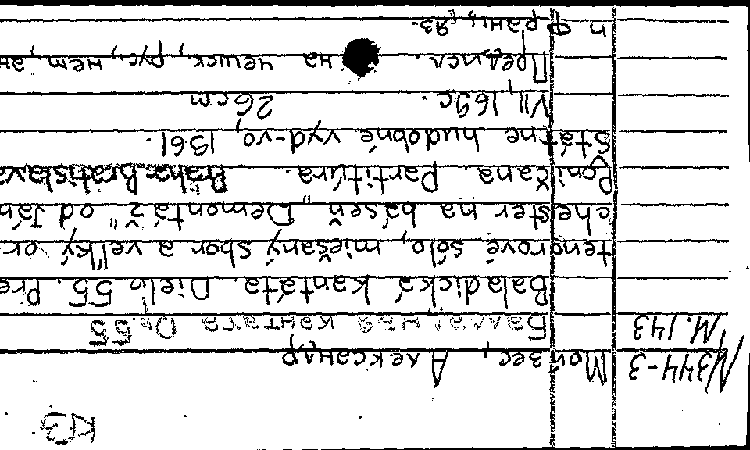 КПЗ
N344-3 Мойзес, Александр
М.143 Балладичная кантата Op.55
Baladická kantáta. Dielo 55. Pre
tenorové sólo, miešaný sbor a veľký or-
chester na báseň "Demontáž" od Jána
Poničana. Partitúra. Praha-Bratislava
Státne hudobné vyd-vo, 1961.
VII, 169с. 26cm
Предисл. на чешск., рус., нем., ан
и франц. яз.